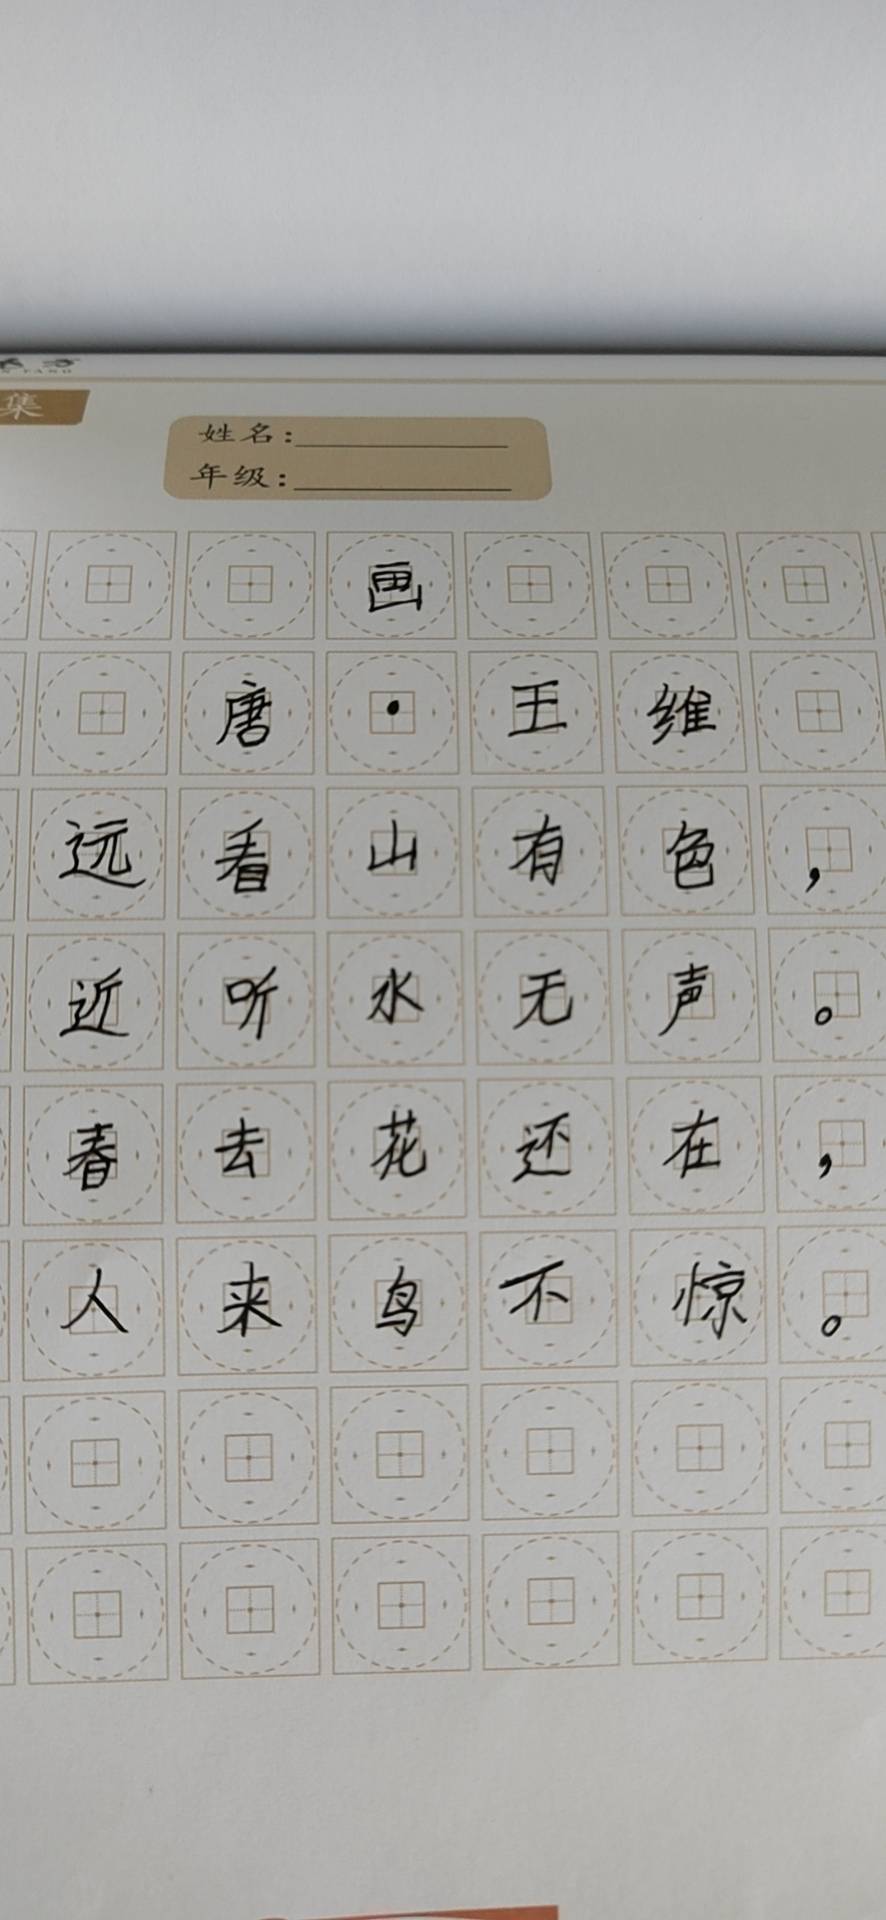 集
姓名：
年级：
画
唐·王维
远看山有色，
近听水无声。
春去花还在，
人来鸟不惊。